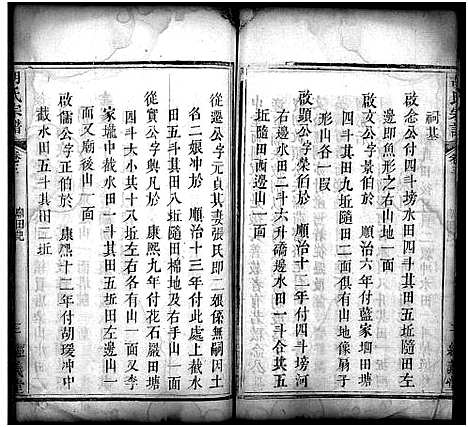 祠基
啟念公付四斗塝水田四斗其四坵隨田左
邊即魚形之右山地一面
啟文公字景伯於 順治六年付藍家塘田
四斗其田九坵隨田二面俱有山地像扇子
形山各一叚
啟顯公字榮伯於 順治十三年付四斗塝河
右邊水田二斗六升磡邊水田一斗合其五
坵隨田西邊山一面
從選公字元貞其妻張氏即二娘係無嗣因土
名二娘冲於 順治十三年付此處上截水
田五斗其田八坵隨田棉地及右手山一面
從實公字與凡於 康熙九年付花石嚴田塘
四斗大小其十八坵左右各有山一面又李
家壠中截水田一斗其田五坵田左山一面
又廟後山一面
啟儒公字正伯於 康熙十二年付胡瑗冲中
截水田五斗其田三坵
胡氏宗譜
卷三
三